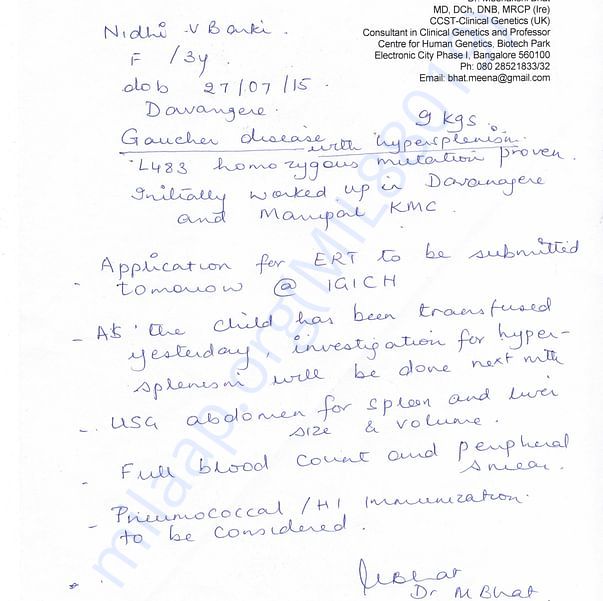 MD, DCh, DNB, MRCP (Ire)
CCST-Clinical Genetics (UK)
Consultant in Clinical Genetics and Professor
Centre for Human Genetics, Biotech Park
Electronic City Phase I, Bangalore 560100
Ph: 080 28521833/32
Email: bhat.meena@gmail.com
Nidhi V Banki
F /3y.
dob 27/07/15
Davangere.
9 kgs.
Gaucher disease with hypersplenism.
L483 homozygous mutation proven.
Initially worked up in Davanagere
and Manipal KMC.
Application for ERT to be submitted
- tomorrow @ IGICH
- As the child has been transfused
yesterday, investigation for hyper-
splenism will be done next mth
- USG abdomen for spleen and liver
size & volume.
- Full blood count and peripheral
smear.
- Pneumococcal /HI Immunization
to be considered.
MBhat
Dr MBhat
milaap.org(MIL8801